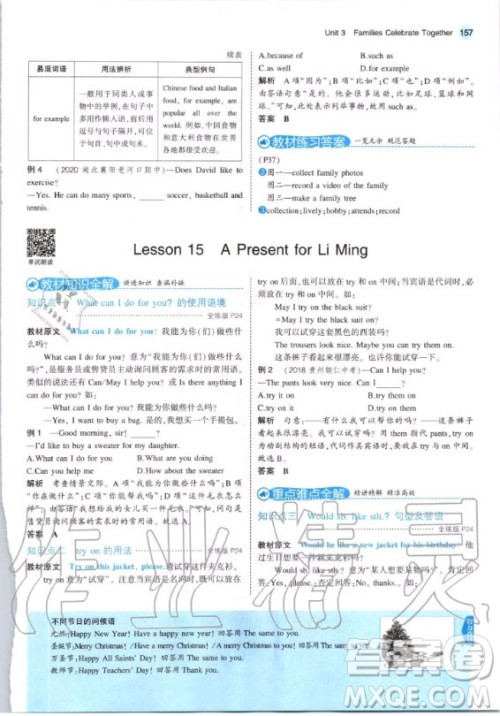 Unit 3 Families Celebrate Together 157
续表
易混词语 用法辨析 典型例句
for example
一般用于同类人或事
物中的举例,在句子中
多用作插入语,前后要
用逗号与句子隔开,可位
于句首、句中或句末
Chinese food and Italian
food, for example, are
popular all over the
world. 例如,中国食物
和意大利食物在世界
各地都很受欢迎。
例4 (2020湖北襄阳老河口期中)—Does David like to
exercise?
—Yes. He can do many sports, ______ soccer, basketball and
tennis.
A.because of B.such as
C.as well D.for example
解析 A项“因为”;B项“例如”;C项“也”;D项“例如”。
由答语句意“是的。他会很多运动,比如足球、篮球和网
球。”可知,此处表示列举事物,故用such as。
答案 B
教材练习答案 一览无余 规范答题
(P37)
❷图一—collect family photos
图二—record a video of the family
图三—make a family tree
❸collection; lively; hobby; attends; record
单词朗读
Lesson 15 A Present for Li Ming
教材知识全解 讲透知识 查漏补缺
知识点一 What can I do for you? 的使用语境
全练版 P24
教材原文 What can I do for you? 我能为你(们)做些什
么吗?
What can I do for you? 意为“我能为你(们)做些什么
吗?”,是服务员或售货员主动询问顾客的需求时的常用语。
类似的说法还有Can/May I help you? 或Is there anything I
can do for you?等。
—What can I do for you? 我能为您做些什么吗?
—Yes, I want to buy a bag. 是的,我想买一个手提包。
例1 —Good morning, sir! ______?
—I'd like to buy a sweater for my daughter.
A.What can I do for you B.What about you
C.Can you help me D.How much is the sweater
解析 考查情景交际。A项“我能为你做些什么吗”;B项
“你在做什么”;C项“你能帮我吗”;D项“这件毛衣怎么
样”。由答语“我想给我的女儿买一件毛衣”可知,问句是
售货员主动询问顾客的需求的用语。故选A。
答案 A
知识点二 try on 的用法 全练版 P24
教材原文 Try on this jacket, please. 请试穿这件夹克衫。
try on意为“试穿”。当宾语是名词时,既可以放在
try on后面,也可以放在try和on中间;当宾语是代词时,必
须放在try和on中间。如:
May I try on the black suit?
=May I try the black suit on?
我可以试穿这套黑色的西装吗?
The trousers look nice. Maybe you can try them on.
这条裤子看起来很漂亮。也许你可以试穿一下。
例2 (2018贵州铜仁中考)—Can I help you?
—The pants look very nice. Can I ______?
A.try it on B.try them on
C.try on it D.try on them
解析 句意:—有什么我可以帮你的吗?——这条裤子
看起来很漂亮。我可以试穿吗?用them指代pants, try on
为动副型短语,代词作其宾语时,应放在两词的中间。
故选B。
答案 B
重点难点全解 精讲精解 精准高效
知识点三 Would sb. like sth.? 句型及答语
全练版 P24
教材原文 Would he like a new jacket for his birthday? 他
过生日想要一件新夹克衫吗?
Would sb. like sth.? 意为“某人想要某物吗?”。肯定
回答用:Yes, please. 否定回答用:No, thanks.。如:
不同节日的问候语
元旦:Happy New Year! Have a happy new year! 回答用 The same to you.
圣诞节:Merry Christmas! Have a merry Christmas! 回答用 The same to you.
万圣节:Happy All Saints' Day! 回答用 The same to you.
教师节:Happy Teachers' Day! 回答用 Thank you.
作业精灵
答案卷
MXQE.COM